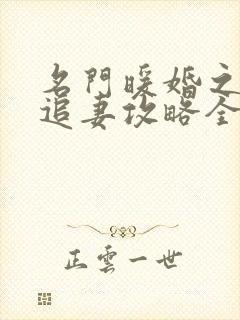 名門暖婚之
追妻攻略全
正雲一世